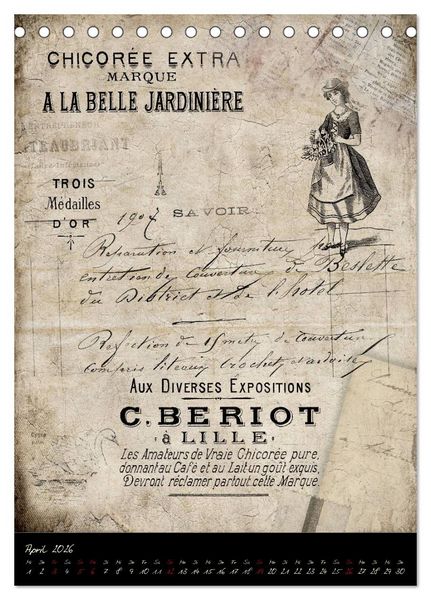 CHICORÉE EXTRA
MARQUE
A LA BELLE JARDINIÈRE
TROIS
Médailles
D'OR
1907
SAVOIR
Reparation et fourniture pour
entretien de couverture de Beslette
du District et de l'hotel
Refection de 15 metr de couverture
compris liteaux crochet, ardoise
AUX DIVERSES EXPOSITIONS
C. BERIOT
à LILLE
Les Amateurs de Vraie Chicorée pure,
donnant au Café et au Lait un goût exquis,
Devront réclamer partout cette Marque.
April 2026
1 2 3 4 5 6 7 8 9 10 11 12 13 14 15 16 17 18 19 20 21 22 23 24 25 26 27 28 29 30